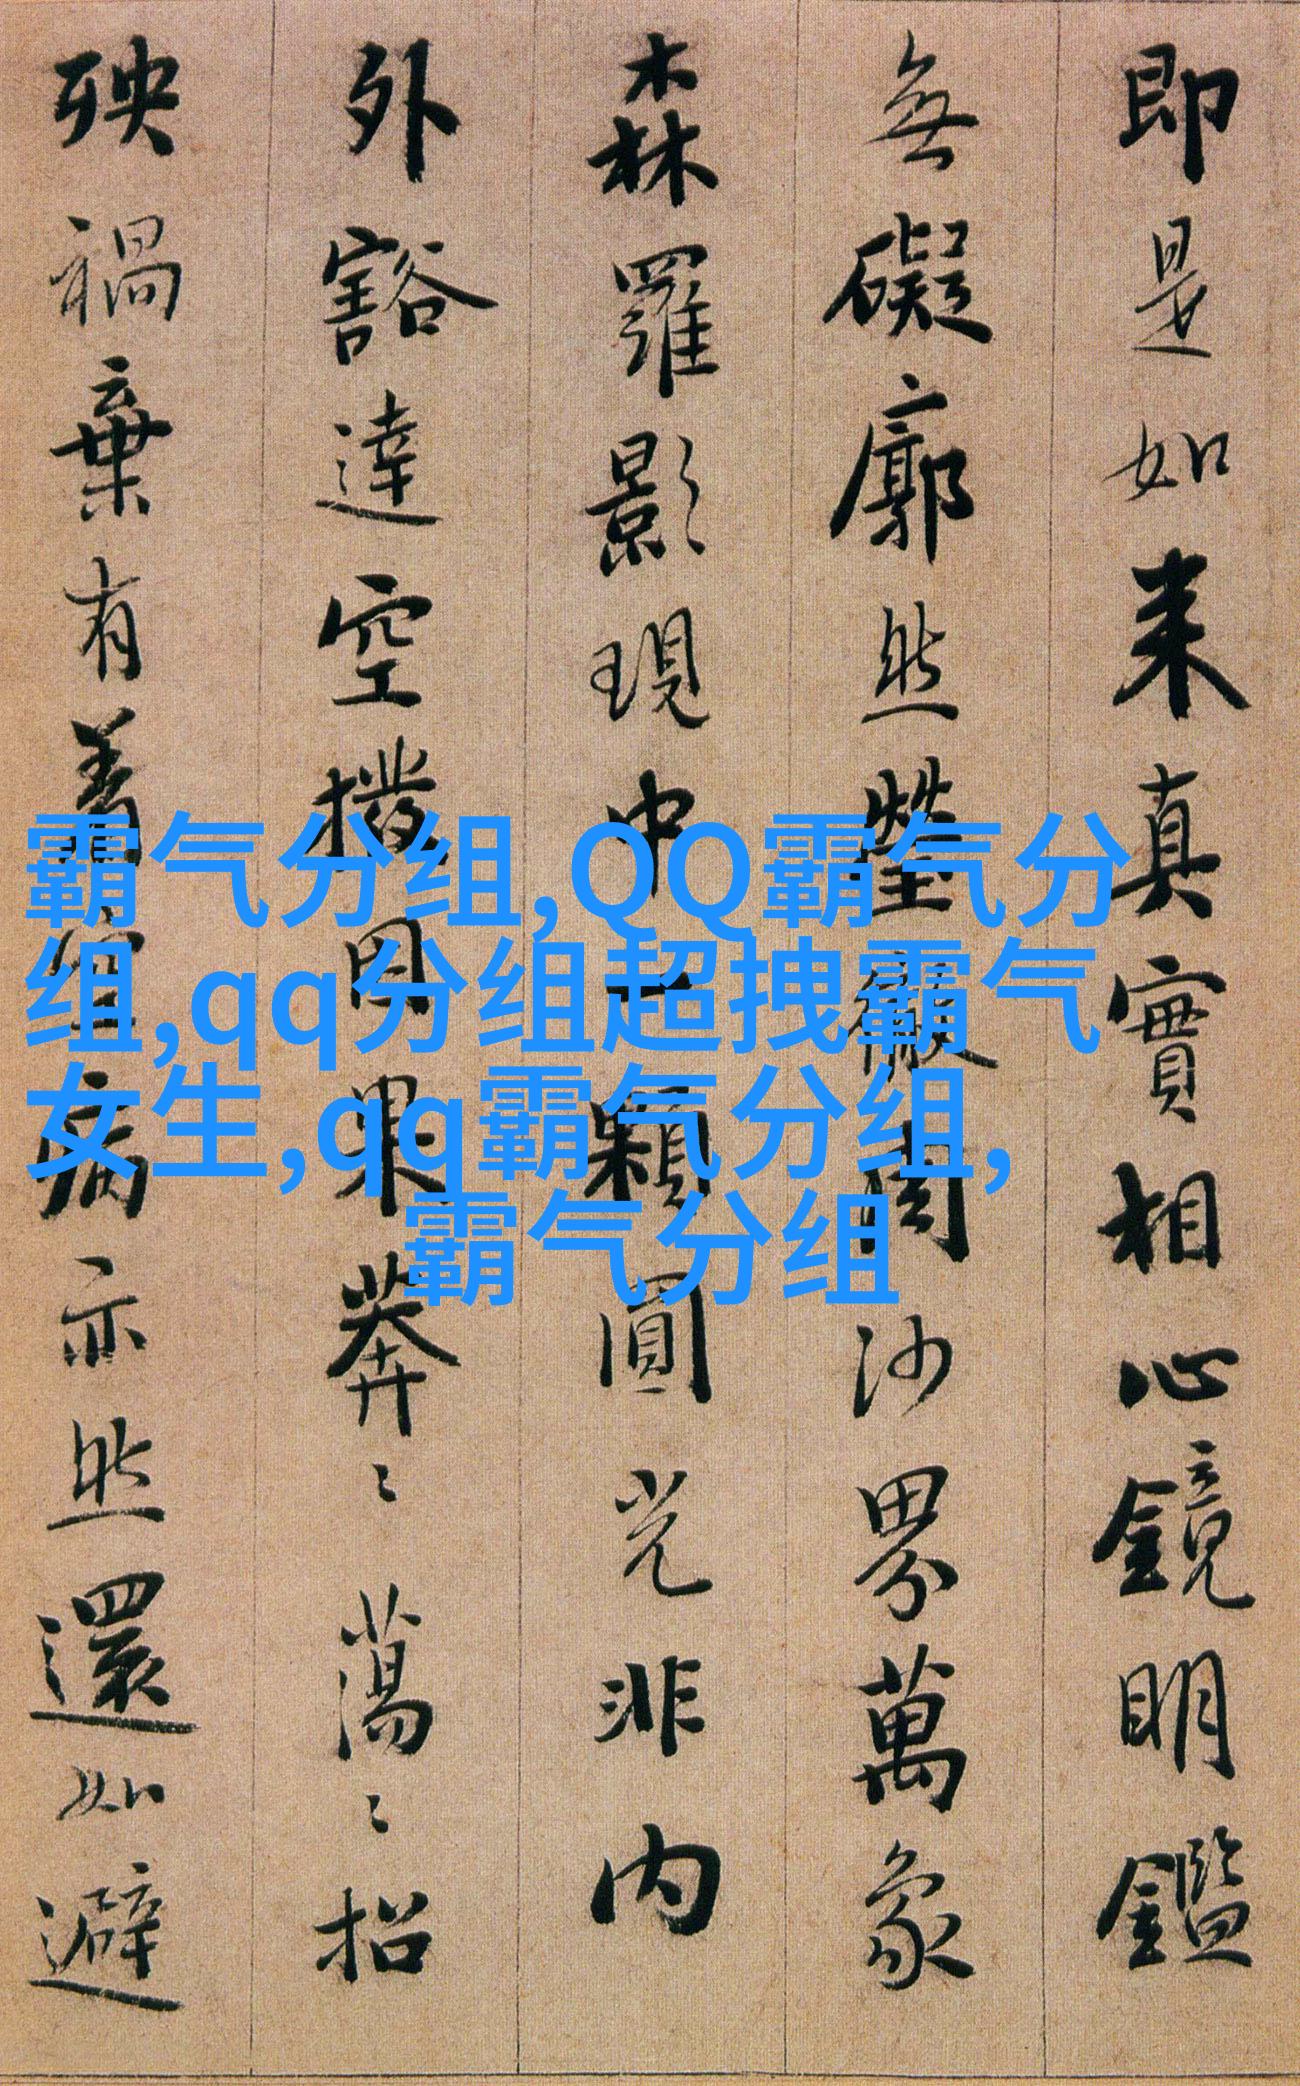 即是如来真實相心鏡明鑑
無礙廓然瑩徹周沙界萬象
森羅影現中一顆圓光非内
外豁達空撥因果莽〻蕩〻招
殃禍棄有著空病亦然還如避
霸气分组,QQ霸气分
组,qq分组超拽霸气
女生,qq霸气分组,
霸气分组